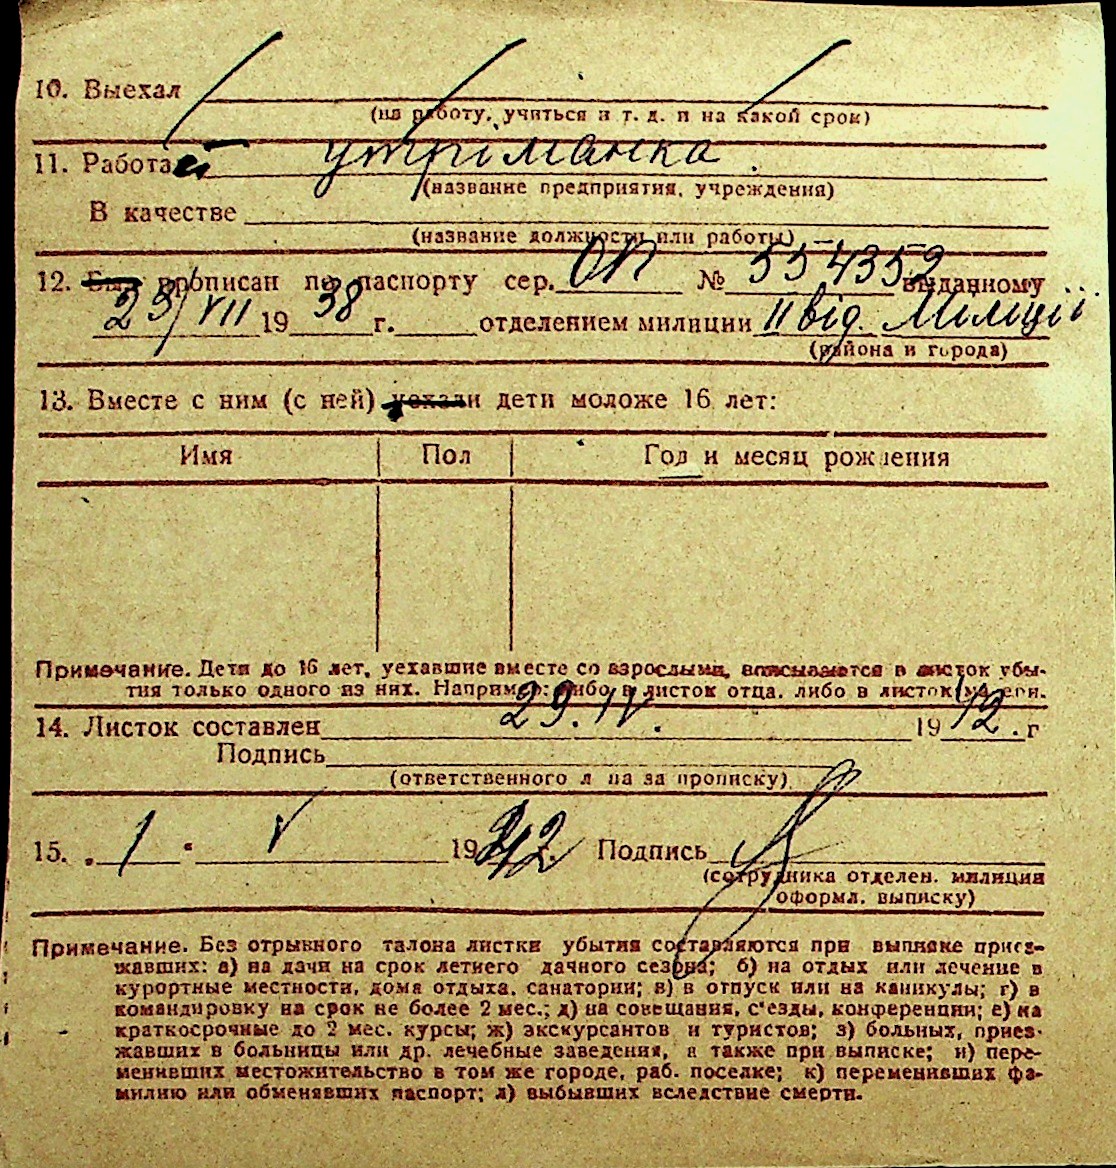 10. Выехал
(на работу, учиться и т. д. и на какой срок)
11. Работает утріманка
(название предприятия, учреждения)
В качестве
(название должности или работы)
12. Был прописан по паспорту сер. ОП № 554352 выданному
23/VII 1938 г. отделением милиции II від. Міліції
(района и города)
13. Вместе с ним (с ней) уехали дети моложе 16 лет:
Имя Пол Год и месяц рождения
Примечание. Дети до 16 лет, уехавшие вместе со взрослыми, вписываются в листок убы-
тия только одного из них. Например: либо в листок отца, либо в листок матери.
14. Листок составлен 29.IV. 1942. г
Подпись
(ответственного лица за прописку)
15. 1 V 1942 Подпись
(сотрудника отделен. милиции
оформл. выписку)
Примечание. Без отрывного талона листки убытия составляются при выписке приез-
жавших: а) на дачи на срок летнего дачного сезона; б) на отдых или лечение в
курортные местности, дома отдыха, санатории; в) в отпуск или на каникулы; г) в
командировку на срок не более 2 мес.; д) на совещания, с'езды, конференции; е) на
краткосрочные до 2 мес. курсы; ж) экскурсантов и туристов; з) больных, приез-
жавших в больницы или др. лечебные заведения, а также при выписке; и) пере-
менивших местожительство в том же городе, раб. поселке; к) переменивших фа-
милию или обменявших паспорт; л) выбывших вследствие смерти.